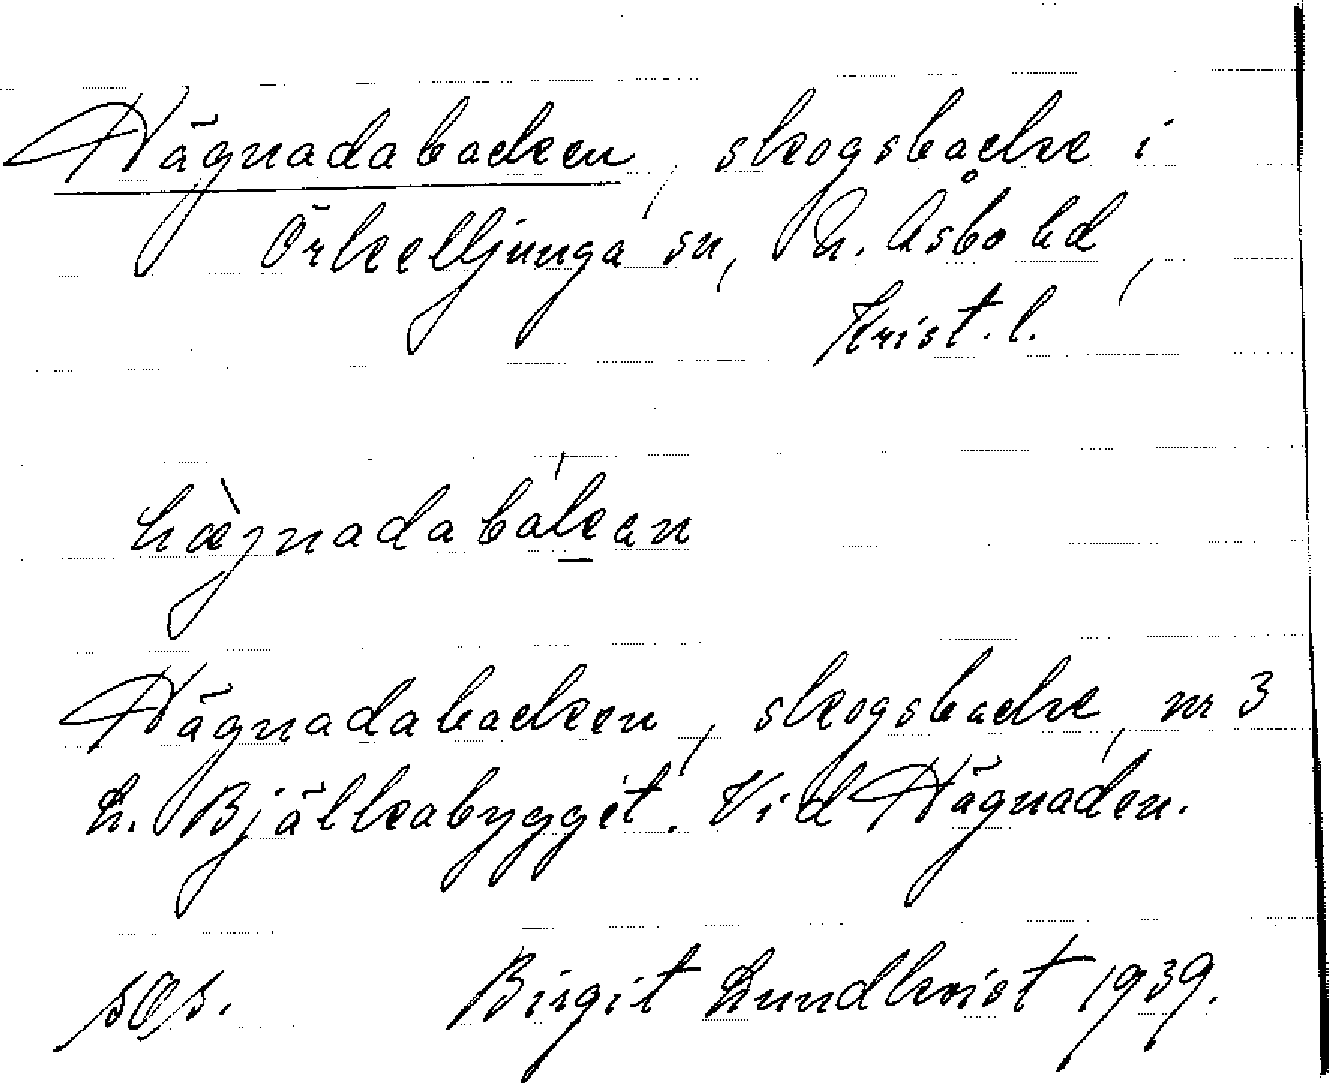 Hägnadabacken, skogsbacke i
Örkelljunga sn, N. Åsbo hd,
Krist. l.
hæ̀gnadabákan
Hägnadabacken, skogsbacke, nr 3
L. Bjälkabygget. Vid Hägnaden.
Birgit Lundkvist 1939.